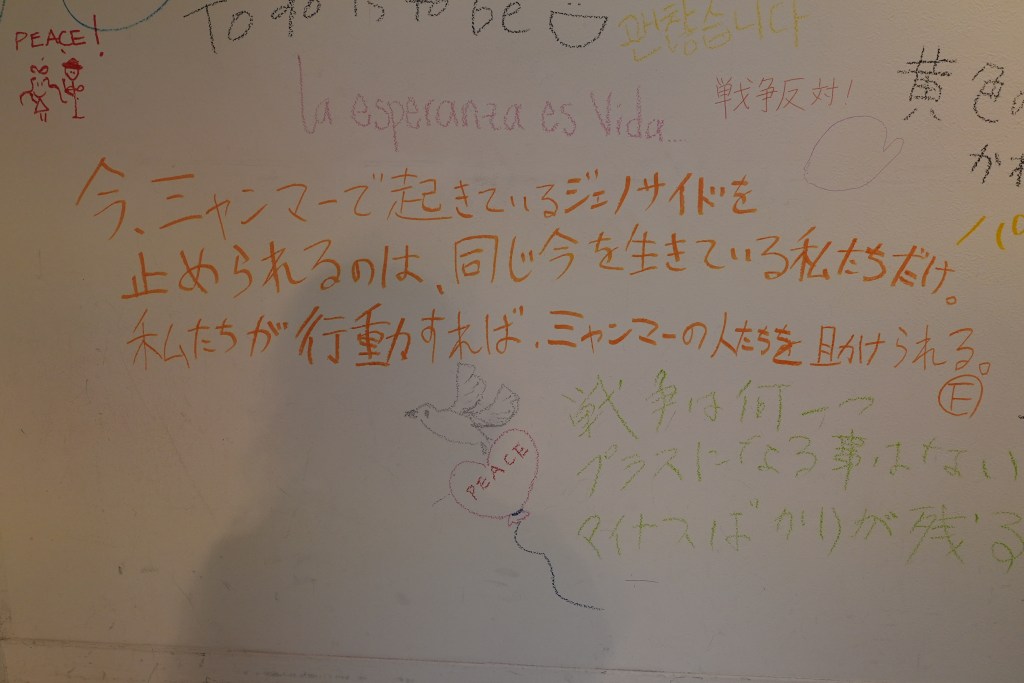 To do is to be
괜찮습니다
PEACE!
la esperanza es Vida...
戦争反対!
黄色の
かれ
今、ミャンマーで起きているジェノサイドを
止められるのは、同じ今を生きている私たちだけ。
私たちが行動すれば、ミャンマーの人たちを助けられる。
E
PEACE
戦争は何一つ
プラスになる事はない
マイナスばかりが残る